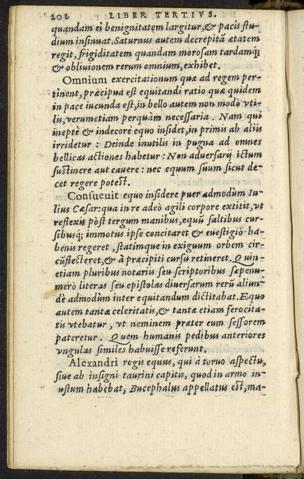 202 LIBER TERTIVS.
quandam ei benignitatem largitur, & pacis stu-
dium insinuat. Saturnus autem decrepitã ætatem
regit, frigiditatem quandam morosam tardamq;
& obliuionem rerum omnium, exhibet.
Omnium exercitationum quæ ad regem per-
tinent, præcipua est equitandi ratio quæ quidem
in pace iucunda est, in bello autem non modò vti-
lis, verumetiam perquàm necessaria. Nam qui
ineptè & indecorè equo insidet, in primis ab alijs
irridetur : Deinde inutilis in pugna ad omnes
bellicas actiones habetur : Non aduersarij ictum
sustinere aut cauere : nec equum suum sicut de-
cet regere potest.
Consueuit equo insidere puer admodùm Iu-
lius Cæsar: qua in re adeò agili corpore extitit, vt
reflexis pòst tergum manibus, equũ saltibus cur-
sibusq; immotus ipse concitaret & euestigiò ha-
benis regeret, statimque in exiguum orbem cir-
cũflecteret, & à præcipiti cursu retineret. Quin-
etiam pluribus notarijs seu scriptoribus sæpenu-
merò literas seu epistolas diuersarum rerũ alium-
dè admodùm inter equitandum dictitabat. Equo
autem tantæ celeritatis, & tantæ etiam ferocita-
tis vtebatur, vt neminem præter eum sessorem
pateretur. Quem humanis pedibus anteriores
vngulas similes habuisse referunt.
Alexandri regis equus, qui à toruo aspectu,
siue ab insigni taurini capitis, quod in armo in-
ustum habebat, Bucephalus appellatus est, ma-